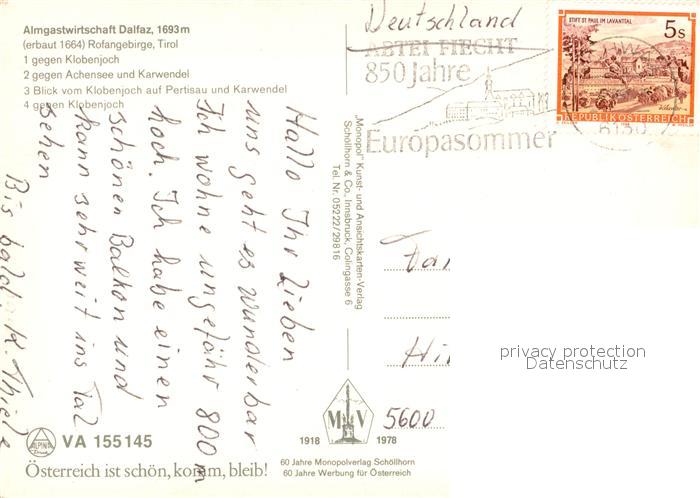 Almgastwirtschaft Dalfaz, 1693 m
(erbaut 1664) Rofangebirge, Tirol
1 gegen Klobenjoch
2 gegen Achensee und Karwendel
3 Blick vom Klobenjoch auf Pertisau und Karwendel
4 gegen Klobenjoch
Hallo Ihr Lieben
uns geht es wunderbar
Ich wohne ungefähr 800 m
hoch. Ich habe einen
schönen Balkon und
kann sehr weit ins Tal
sehen
Bis bald. K. Thiele
ALPINA
Druck
VA 155145
Österreich ist schön, komm, bleib!
„Monopol" Kunst- und Ansichtskarten-Verlag
Schöllhorn & Co., Innsbruck, Colingasse 6
Tel. Nr. 05222/29816
M V
1918 1978
60 Jahre Monopolverlag Schöllhorn
60 Jahre Werbung für Österreich
Deutschland
ABTEI FIECHT
850 Jahre
Europasommer
STIFT ST. PAUL IM LAVANTTAL
5 S
REPUBLIK ÖSTERREICH
6130
Fa
Hi
5600
privacy protection
Datenschutz